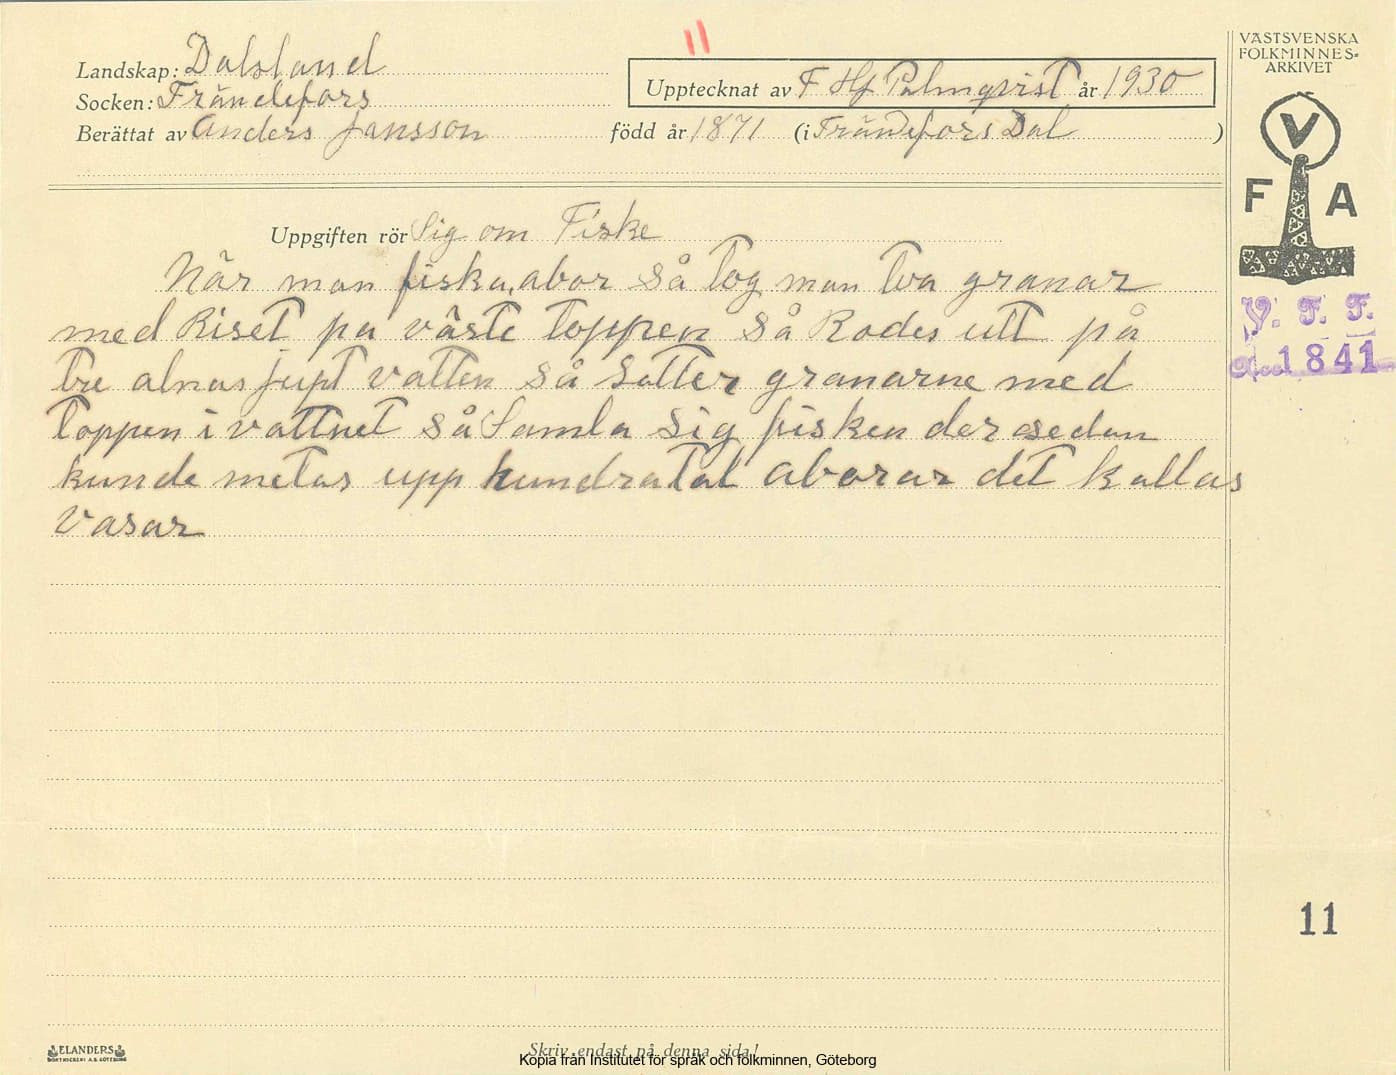 11
VÄSTSVENSKA
FOLKMINNES-
ARKIVET
Landskap: Dalsland
Socken: Frändefors
Upptecknat av F Hj Palmqvist år 1930
Berättat av Anders Jansson född år 1871 (i Frändefors Dal )
V
F A
Uppgiften rör Sig om Fiske
När man fiska, abor så tog man tva granar
med Riset pa väste toppen så Rodes utt på
tre alnas jupt vatten så satter granarne med
toppen i vattnet så Samla sig fisken der sedan
kunde metas upp hundratal aborar det kallas
vasar
V. F. F.
Acc 1841
11
ELANDERS
BOKTRYCKERI A.B. GÖTEBORG
Skriv endast på denna sida!
Kopia från Institutet för språk och folkminnen, Göteborg